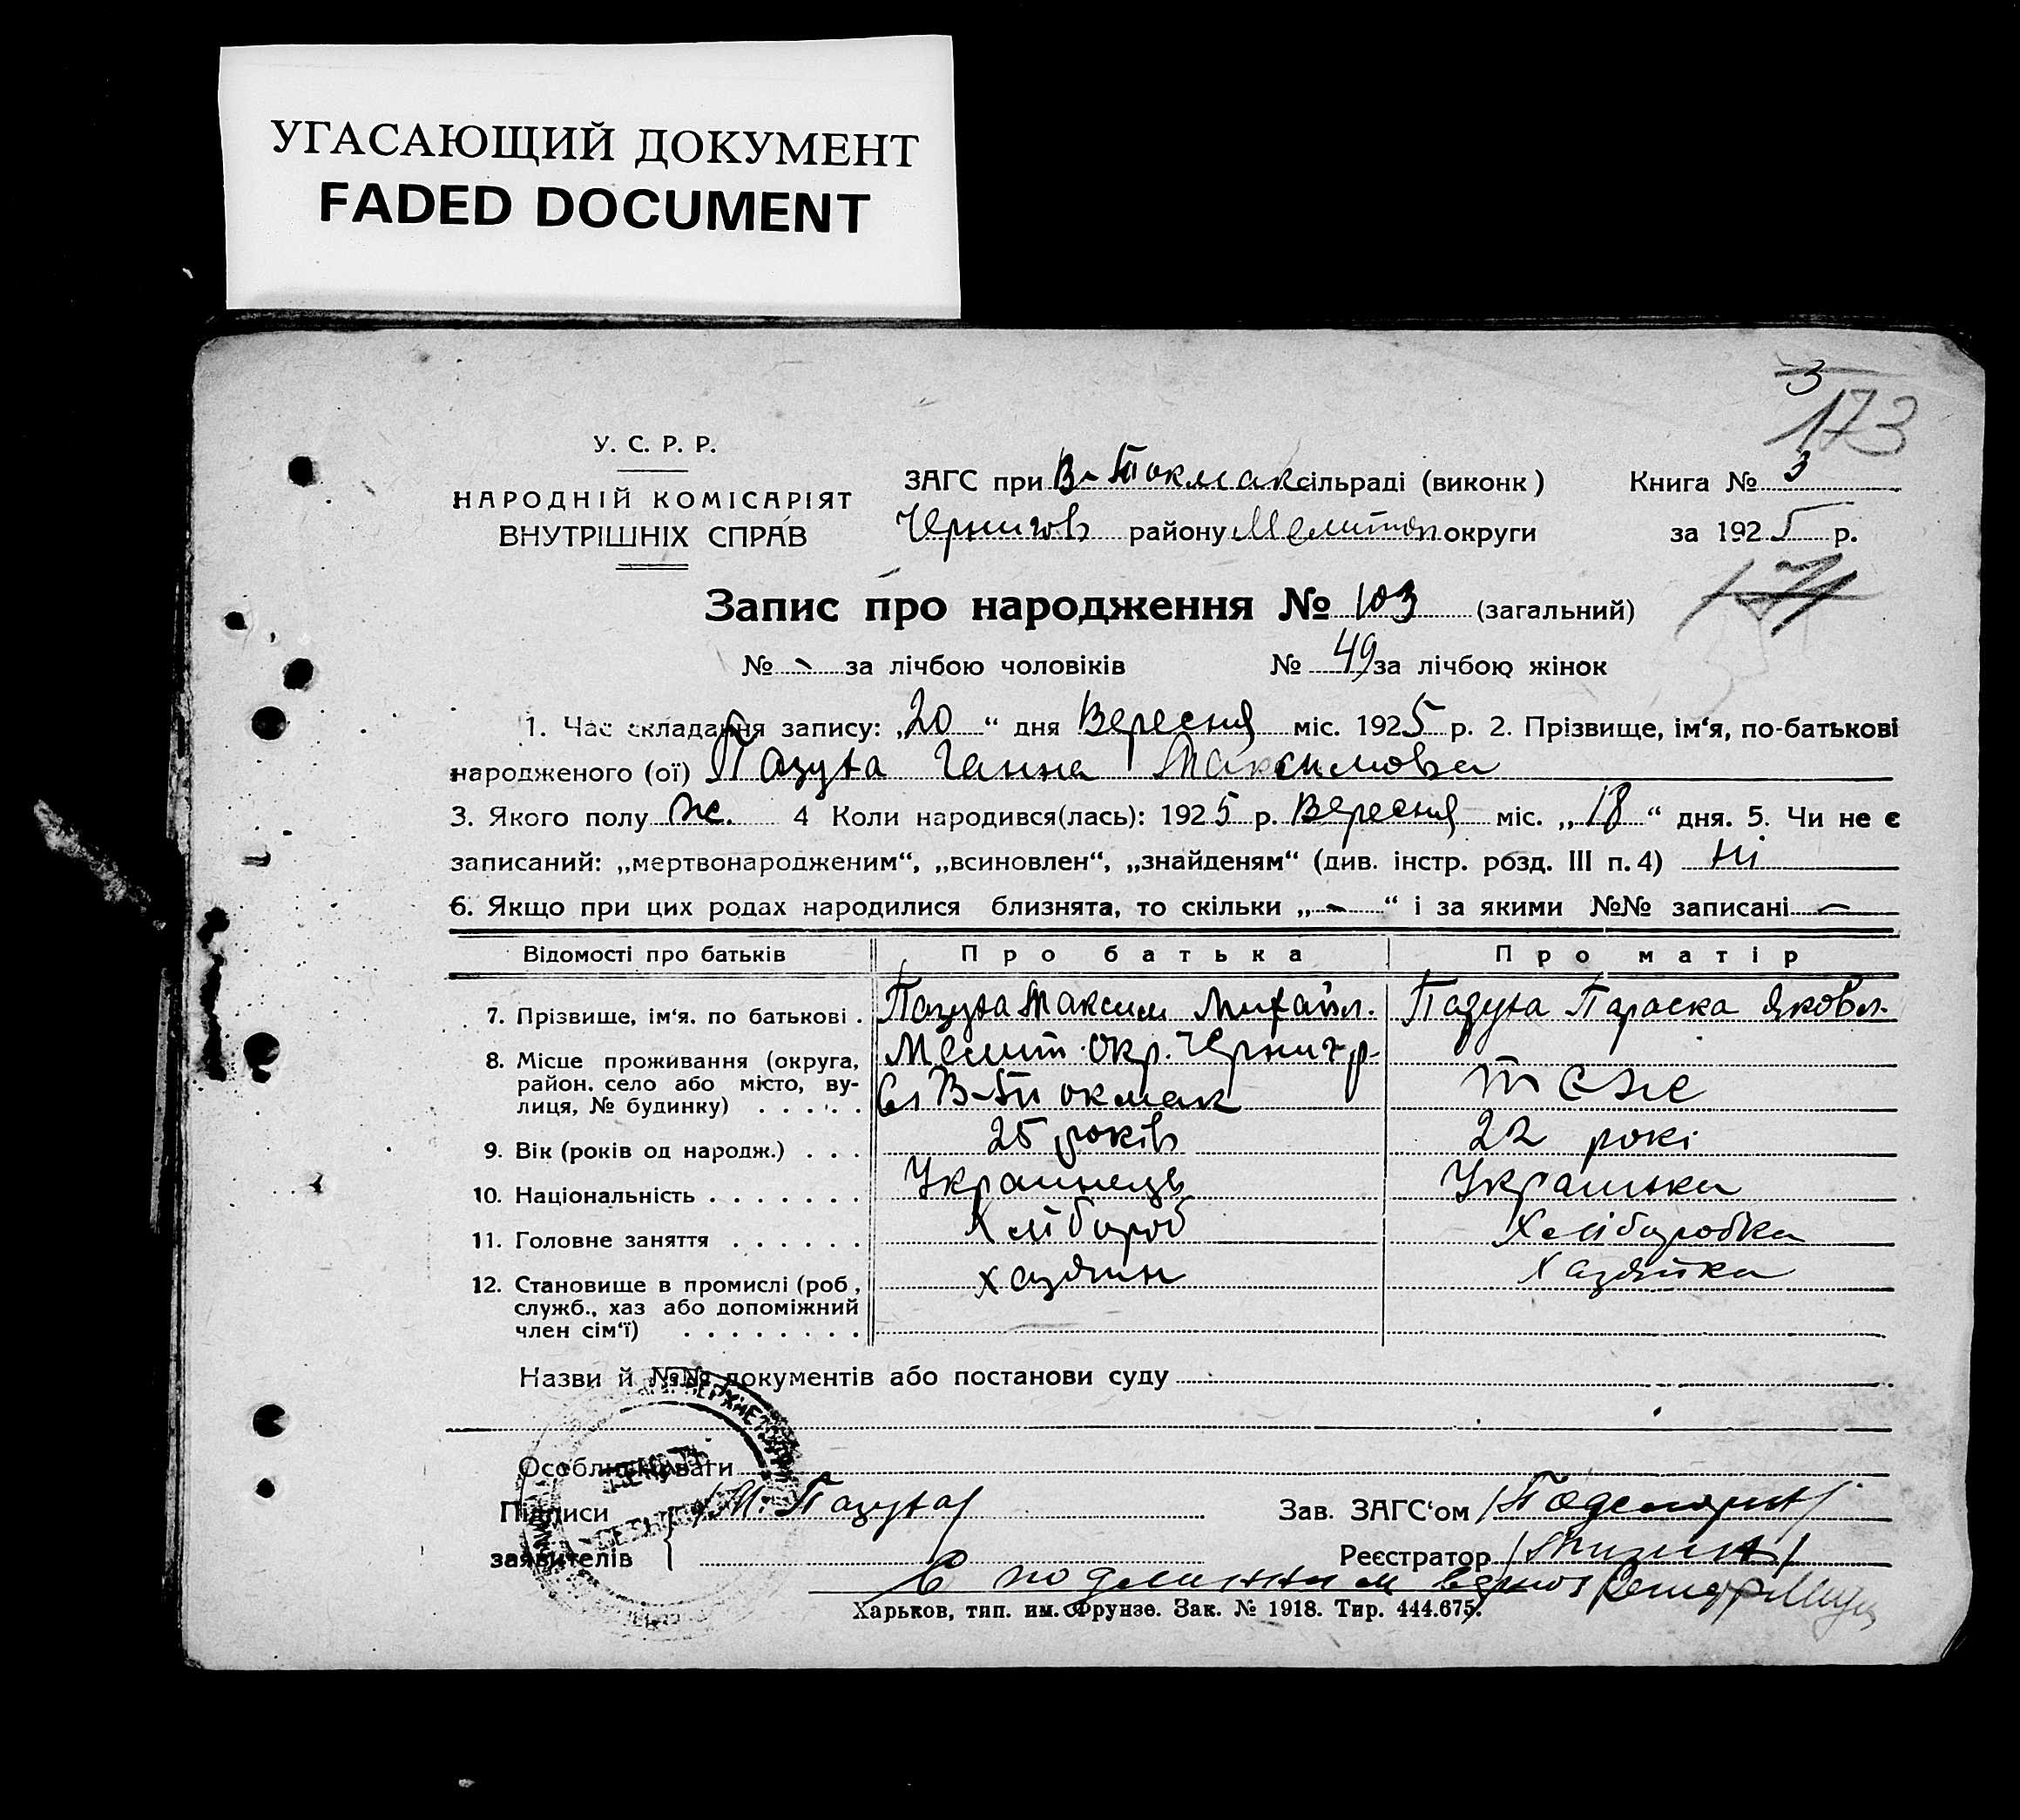 УГАСАЮЩИЙ ДОКУМЕНТ
FADED DOCUMENT
3
173
У. С. Р. Р.
НАРОДНІЙ КОМІСАРІЯТ
ВНУТРІШНІХ СПРАВ
ЗАГС при В-Токмак сільраді (виконк)
Чернигов району Мелитоп округи
Книга № 3
за 1925 р.
Запис про народження № 103 (загальний)
171
№ - за лічбою чоловіків № 49 за лічбою жінок
1. Час складання запису: „20“ дня Вересня міс. 1925 р. 2. Прізвище, ім‘я, по-батькові
народженого (ої) Пазуха Ганна Максимовна
3. Якого полу ж. 4 Коли народився(лась): 1925 р. Вересня міс. „18“ дня. 5. Чи не є
записаний: „мертвонародженим“, „всиновлен“, „знайденям“ (див. інстр. розд. III п. 4) Ні
6. Якщо при цих родах народилися близнята, то скільки „-“ і за якими №№ записані -
Відомості про батьків Про батька Про матір
7. Прізвище, ім‘я. по батькові . Пазуха Максим Михайл. Пазуха Параска Яковл.
8. Місце проживання (округа, район. село або місто, вулиця, № будинку) . . . . .
Мелит. Окр. Черниг р.
В-Токмак теже
9. Вік (років од народж.) . . . 25 років 22 рокі
10. Національність . . . . . . . Украинець Украинка
11. Головне заняття . . . . . . Хлібороб Хліборобка
12. Становище в промислі (роб, служб., хаз або допоміжний член сім‘ї) . . . . . . . .
хазяин Хазяйка
Назви й №№ документів або постанови суду
Особливі уваги
Підписи заявителів М. Пазуха
Зав. ЗАГС‘ом
Реєстратор
С подлинным верно
Харьков, тип. им. Фрунзе. Зак. № 1918. Тир. 444.675.